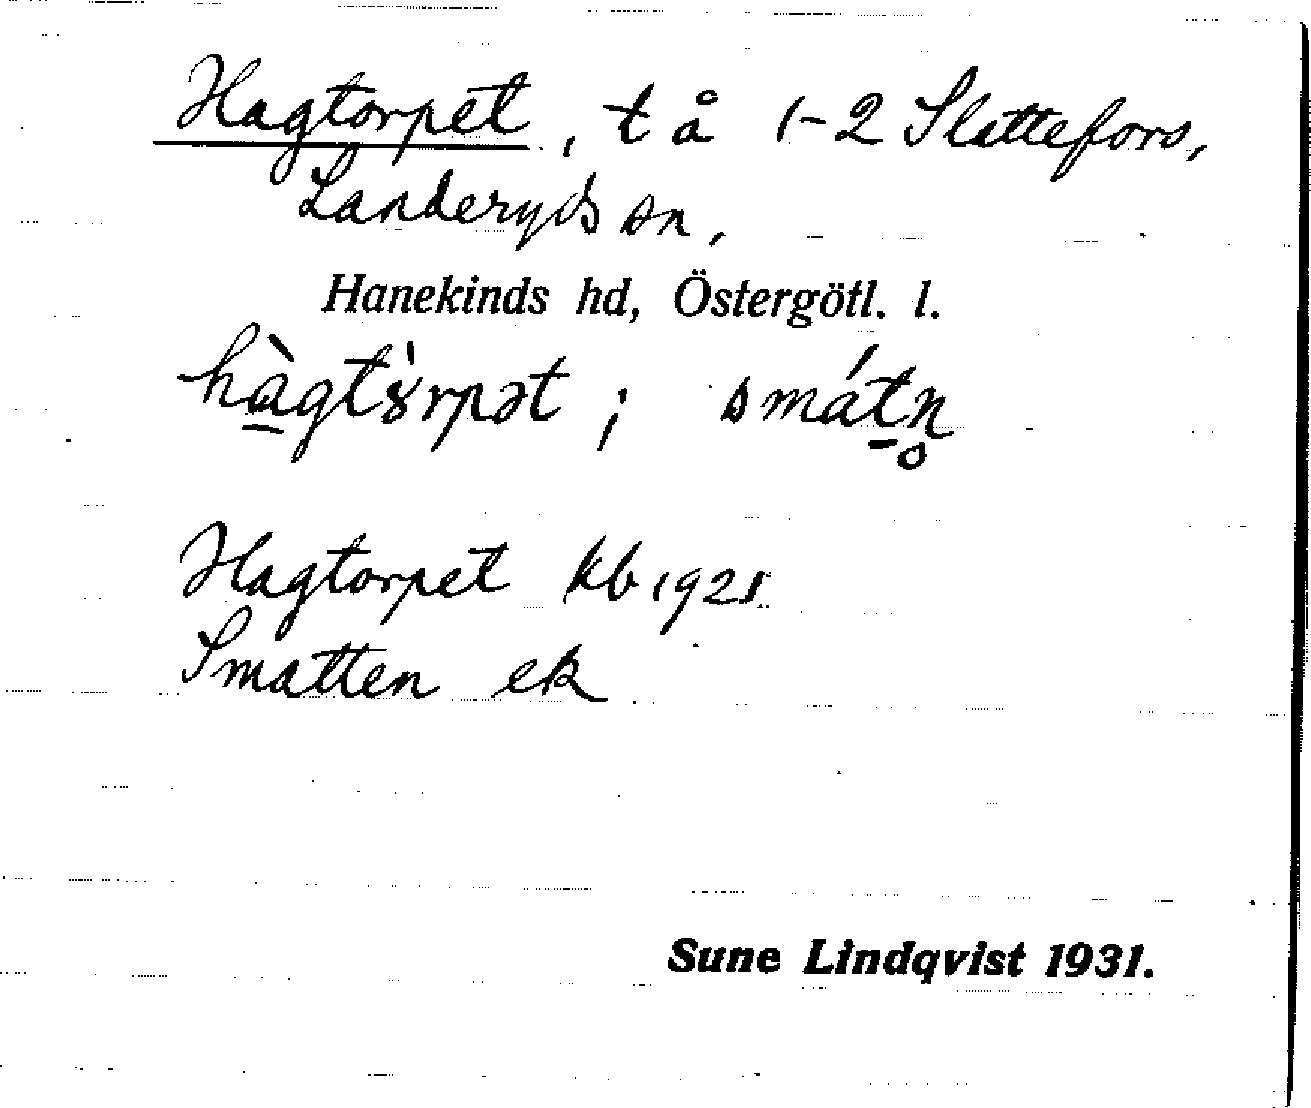 Hagtorpet, t å 1-2 Slattefors,
Landeryds sn,
Hanekinds hd, Östergötl. l.
hà̠gtòrpət ; smát̠n̥
Hagtorpet kb 1921
Smatten ek
Sune Lindqvist 1931.